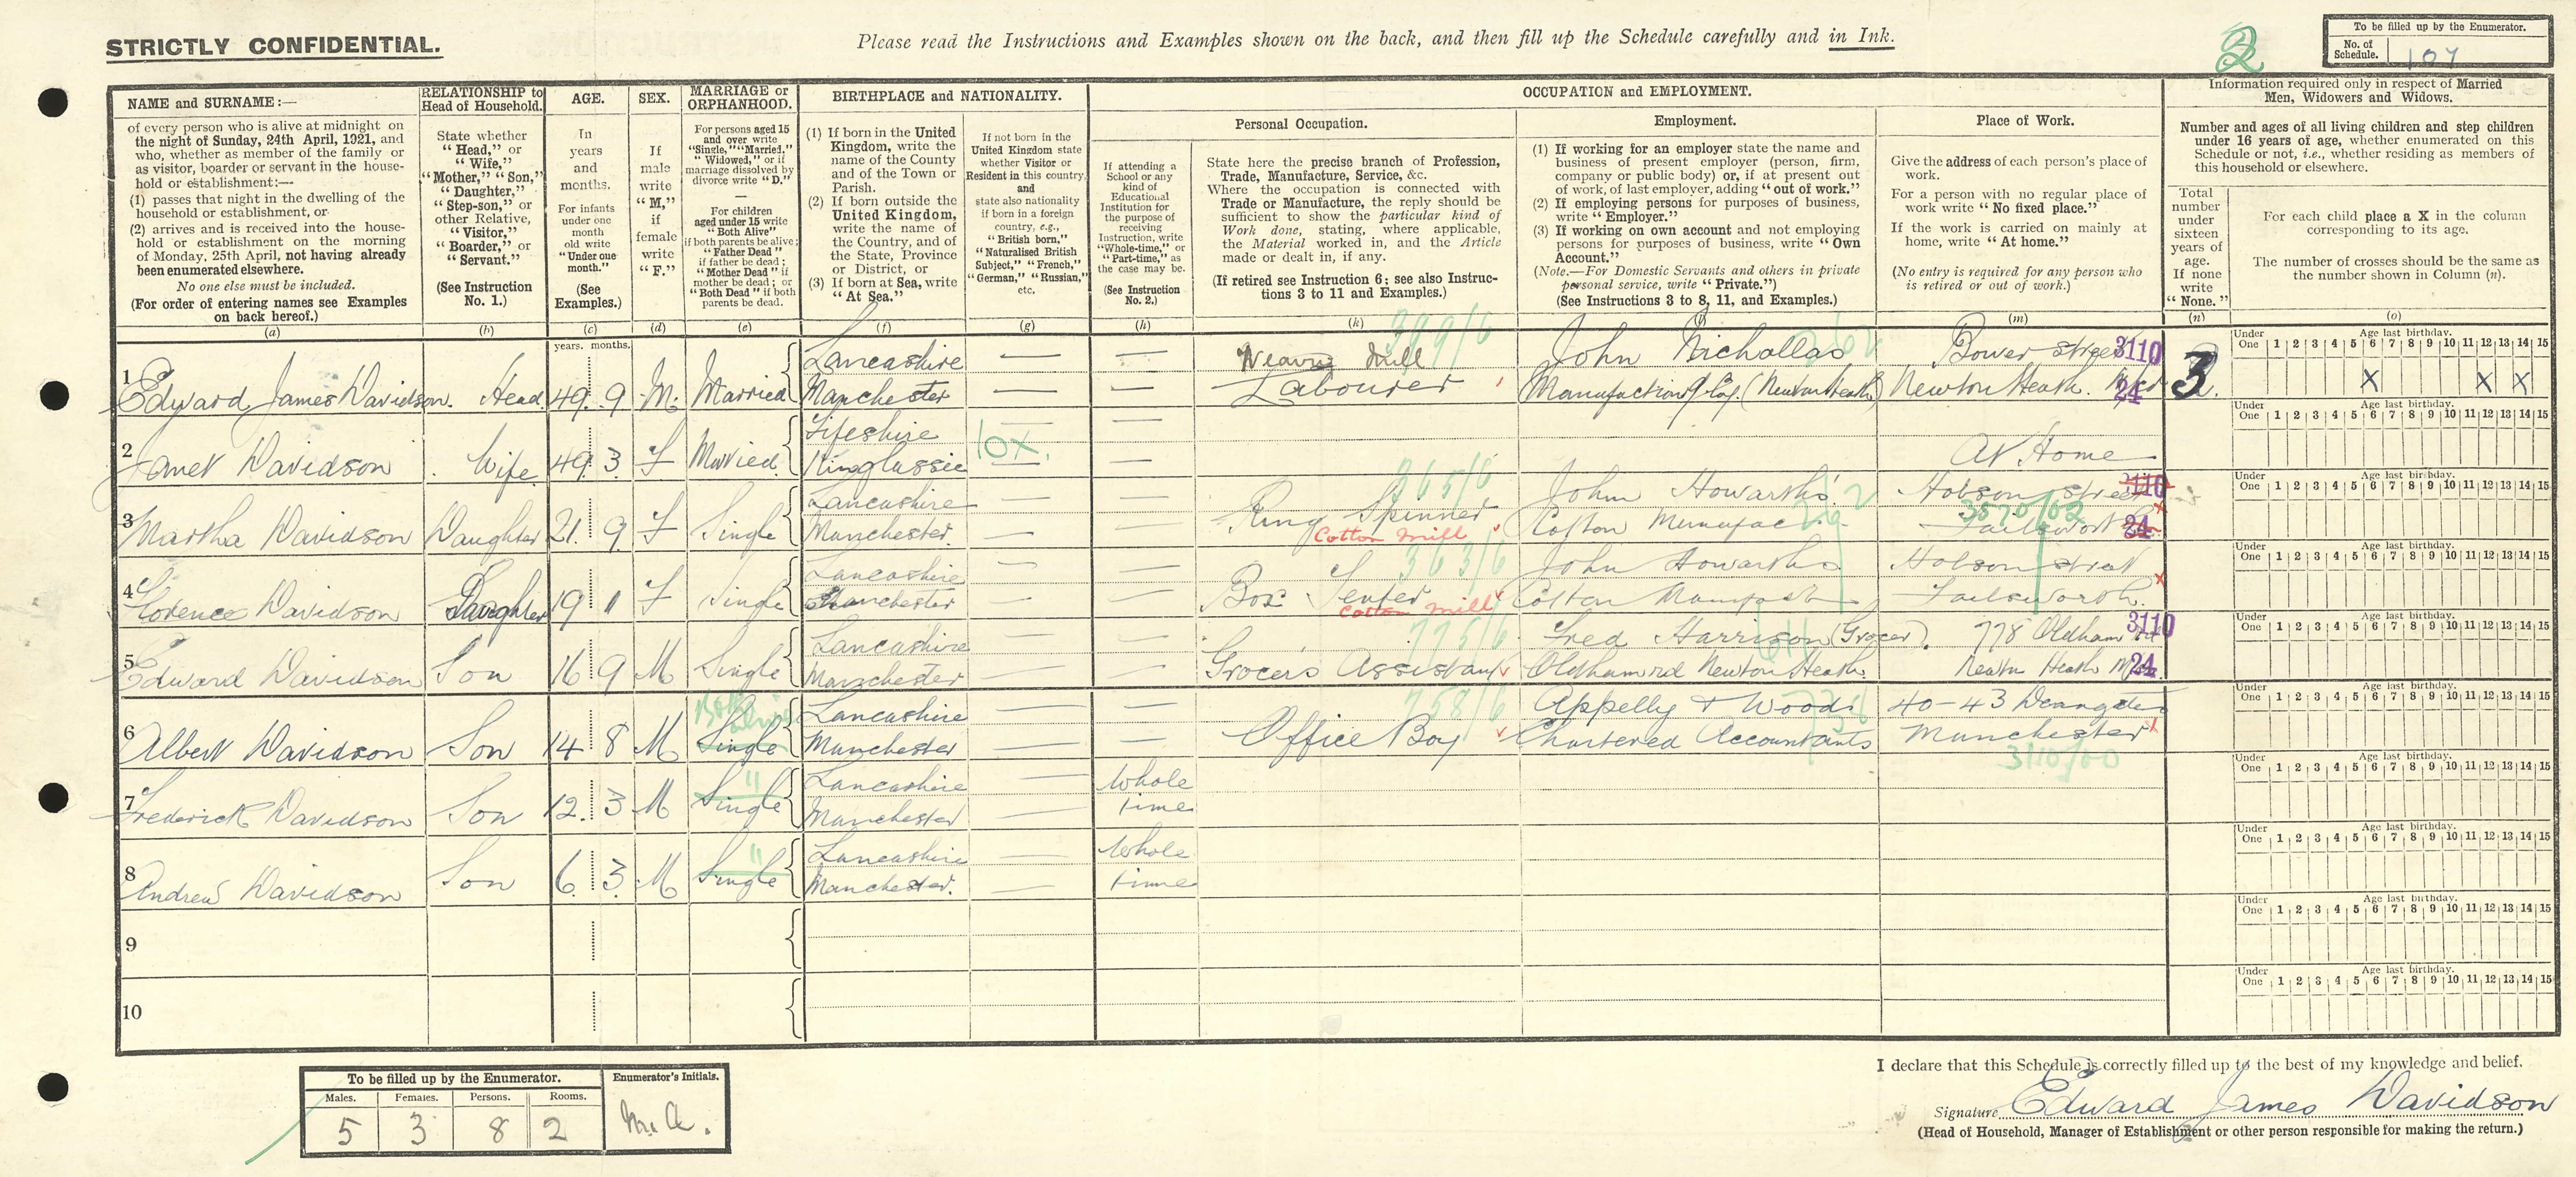 STRICTLY CONFIDENTIAL.
Please read the Instructions and Examples shown on the back, and then fill up the Schedule carefully and in Ink.
2
To be filled up by the Enumerator.
No. of Schedule. 107
NAME and SURNAME:—
of every person who is alive at midnight on
the night of Sunday, 24th April, 1921, and
who, whether as member of the family or
as visitor, boarder or servant in the house-
hold or establishment:—
(1) passes that night in the dwelling of the
household or establishment, or
(2) arrives and is received into the house-
hold or establishment on the morning
of Monday, 25th April, not having already
been enumerated elsewhere.
No one else must be included.
(For order of entering names see Examples
on back hereof.)
(a)
RELATIONSHIP to
Head of Household.
State whether
"Head," or
"Wife,"
"Mother," "Son,"
"Daughter,"
"Step-son," or
other Relative,
"Visitor,"
"Boarder," or
"Servant."
(See Instruction
No. 1.)
(b)
AGE.
In
years
and
months.
For infants
under one
month
old write
"Under one
month."
(See
Examples.)
(c)
years. months.
SEX.
If
male
write
"M,"
if
female
write
"F."
(d)
MARRIAGE or
ORPHANHOOD.
For persons aged 15
and over write
"Single," "Married,"
"Widowed," or if
marriage dissolved by
divorce write "D."
For children
aged under 15 write
"Both Alive"
if both parents be alive;
"Father Dead"
if father be dead;
"Mother Dead" if
mother be dead; or
"Both Dead" if both
parents be dead.
(e)
BIRTHPLACE and NATIONALITY.
(1) If born in the United
Kingdom, write the
name of the County
and of the Town or
Parish.
(2) If born outside the
United Kingdom,
write the name of
the Country, and of
the State, Province
or District, or
(3) If born at Sea, write
"At Sea."
(f)
If not born in the
United Kingdom state
whether Visitor or
Resident in this country,
and
state also nationality
if born in a foreign
country, e.g.,
"British born,"
"Naturalised British
Subject," "French,"
"German," "Russian,"
etc.
(g)
OCCUPATION and EMPLOYMENT.
Personal Occupation.
If attending a
School or any
kind of
Educational
Institution for
the purpose of
receiving
Instruction, write
"Whole-time," or
"Part-time," as
the case may be.
(See Instruction
No. 2.)
(h)
State here the precise branch of Profession,
Trade, Manufacture, Service, &c.
Where the occupation is connected with
Trade or Manufacture, the reply should be
sufficient to show the particular kind of
Work done, stating, where applicable,
the Material worked in, and the Article
made or dealt in, if any.
(If retired see Instruction 6; see also Instruc-
tions 3 to 11 and Examples.)
(k)
Employment.
(1) If working for an employer state the name and
business of present employer (person, firm,
company or public body) or, if at present out
of work, of last employer, adding "out of work."
(2) If employing persons for purposes of business,
write "Employer."
(3) If working on own account and not employing
persons for purposes of business, write "Own
Account."
(Note.—For Domestic Servants and others in private
personal service, write "Private.")
(See Instructions 3 to 8, 11, and Examples.)
(l)
Place of Work.
Give the address of each person's place of
work.
For a person with no regular place of
work write "No fixed place."
If the work is carried on mainly at
home, write "At home."
(No entry is required for any person who
is retired or out of work.)
(m)
Information required only in respect of Married
Men, Widowers and Widows.
Number and ages of all living children and step children
under 16 years of age, whether enumerated on this
Schedule or not, i.e., whether residing as members of
this household or elsewhere.
Total
number
under
sixteen
years of
age.
If none
write
"None."
(n)
For each child place a X in the column
corresponding to its age.
The number of crosses should be the same as
the number shown in Column (n).
(o)
Under One Age last birthday. 1 2 3 4 5 6 7 8 9 10 11 12 13 14 15
1 Edward James Davidson. Head. 49. 9 M. Married Lancashire Manchester — — Weaving Mill Labourer 399/6 John Nichollas Manufacturing (Newton Heath) 262 Bower Street Newton Heath. 3110 24 3 X X X
Under One Age last birthday. 1 2 3 4 5 6 7 8 9 10 11 12 13 14 15
2 Janet Davidson Wife 49. 3 F Married. Fifeshire Kinglassie 10X. — At Home
Under One Age last birthday. 1 2 3 4 5 6 7 8 9 10 11 12 13 14 15
3 Martha Davidson Daughter 21. 9 F Single Lancashire Manchester. — — Ring Spinner Cotton Mill 365/6 John Howarths Cotton Hobson Street Failsworth 3110 24 3570/02
Under One Age last birthday. 1 2 3 4 5 6 7 8 9 10 11 12 13 14 15
4 Florence Davidson Daughter 19 11 F Single Lancashire Manchester — — Box Tenter Cotton Mill 363/6 John Howarths Cotton Hobson Street Failsworth.
Under One Age last birthday. 1 2 3 4 5 6 7 8 9 10 11 12 13 14 15
5 Edward Davidson Son 16 9 M Single Lancashire Manchester — — Grocer's Assistant 775/6 Fred Harrison (Grocer). Oldham rd Newton Heath. 778 Oldham Rd Newton Heath 3110 24
Under One Age last birthday. 1 2 3 4 5 6 7 8 9 10 11 12 13 14 15
6 Albert Davidson Son 14 8 M Single Both alive Lancashire Manchester — — Office Boy 758/6 Appelly & Woods Chartered Accountants 40-43 Deansgate Manchester 3110/00
Under One Age last birthday. 1 2 3 4 5 6 7 8 9 10 11 12 13 14 15
7 Frederick Davidson Son 12. 3 M Single " Lancashire Manchester — Whole time
Under One Age last birthday. 1 2 3 4 5 6 7 8 9 10 11 12 13 14 15
8 Andrew Davidson Son 6. 3 M Single " Lancashire Manchester. — Whole time
Under One Age last birthday. 1 2 3 4 5 6 7 8 9 10 11 12 13 14 15
9
Under One Age last birthday. 1 2 3 4 5 6 7 8 9 10 11 12 13 14 15
10
To be filled up by the Enumerator.
Males. Females. Persons. Rooms.
5 3 8 2
Enumerator's Initials.
M.A.
I declare that this Schedule is correctly filled up to the best of my knowledge and belief.
Signature Edward James Davidson
(Head of Household, Manager of Establishment or other person responsible for making the return.)